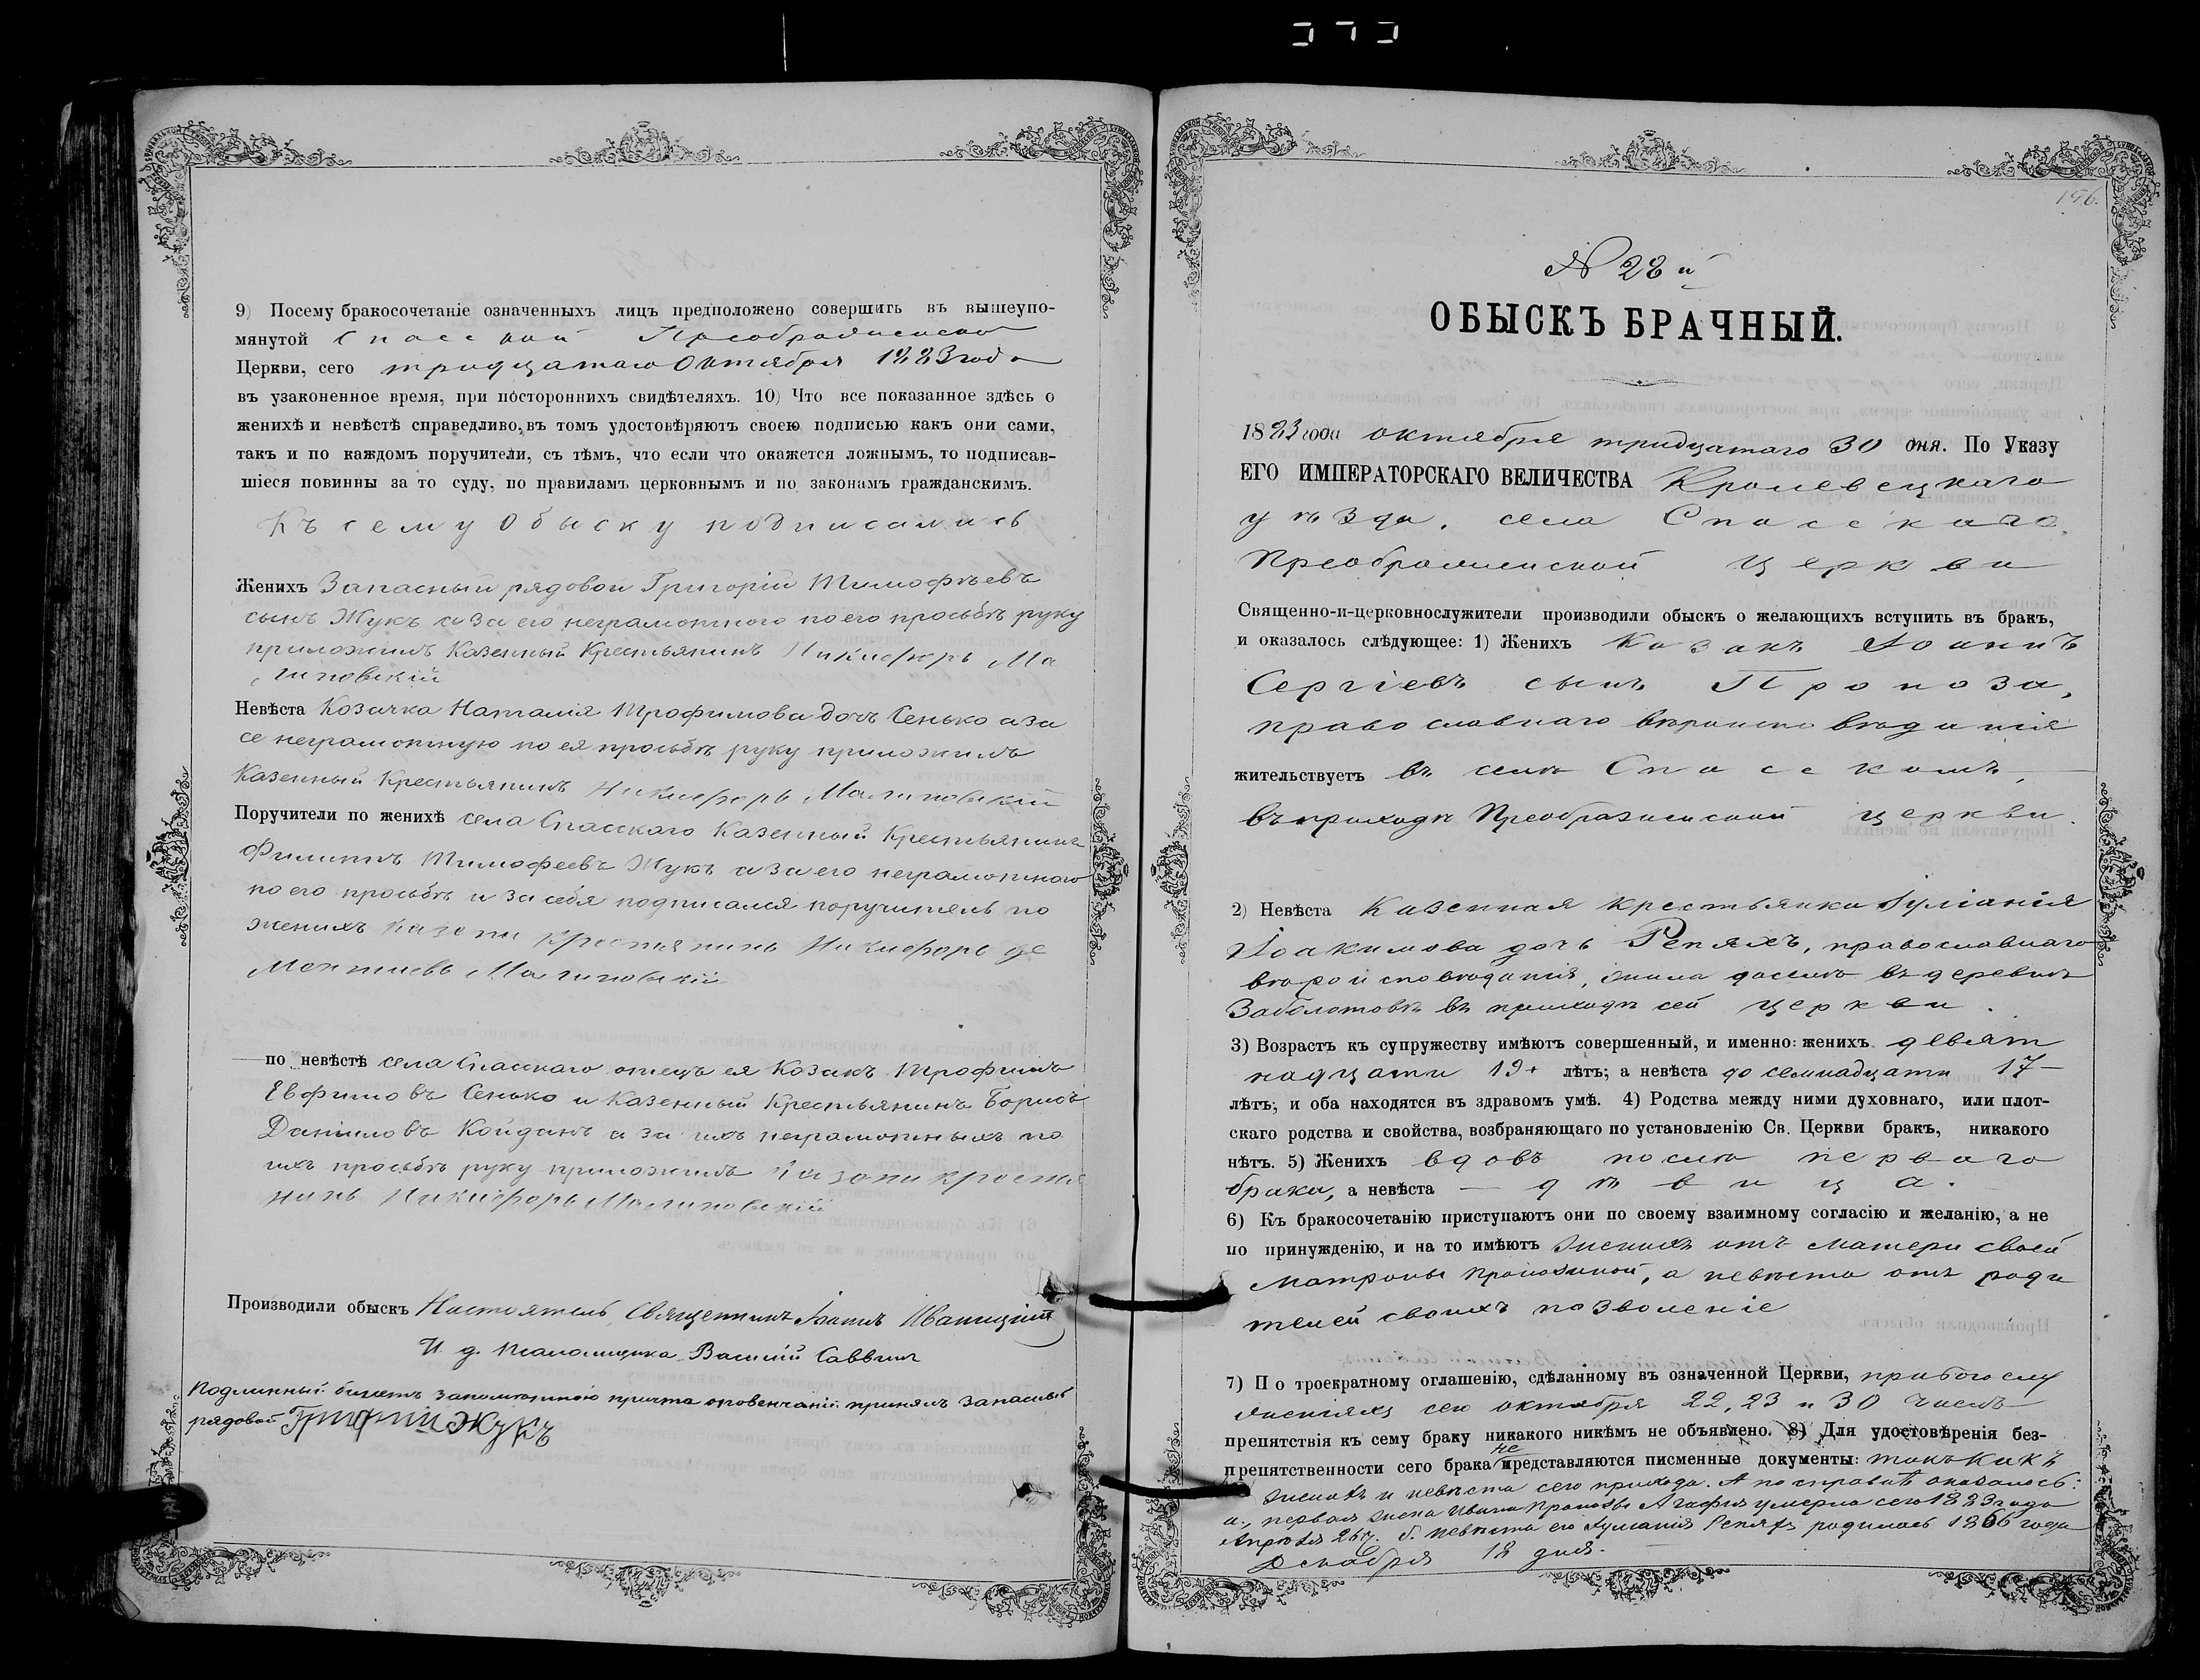 9) Посему бракосочетаніе означенныхъ лицъ предположено совершить въ вышеупо-
мянутой Спасской Преображенской
Церкви, сего тридцатаго Октября 1883 года
въ узаконенное время, при постороннихъ свидѣтеляхъ. 10) Что все показанное здѣсь о
женихѣ и невѣстѣ справедливо, въ томъ удостовѣряютъ своею подписью какъ они сами,
такъ и по каждомъ поручители, съ тѣмъ, что если что окажется ложнымъ, то подписав-
шіеся повинны за то суду, по правиламъ церковнымъ и по законамъ гражданскимъ.
Къ сему обыску подписались
Женихъ Запасный рядовой Григорій Тимофѣевъ
сынъ Жукъ а за его неграмотного по его просьбѣ руку
приложилъ Казенный Крестьянинъ Никифоръ Ма
линовскій
Невѣста Козачка Наталія Трофимова дочь Сенько а за
ее неграмотную по ея просьбѣ руку приложилъ
Казенный Крестьянинъ Никифоръ Малиновскій
Поручители по женихѣ села Спасскаго Казенный Крестьянинъ
Филиппъ Тимофеевъ Жукъ а за его неграмотного
по его просьбѣ и за себя подписался поручитель по
женихѣ Никифоръ де
Ментиевъ Малиновскій
по невѣстѣ села Спасскаго отецъ ея Козакъ Трофимъ
Евфимовъ Сенько и Казенный Крестьянинъ Борисъ
Даніиловъ Койданъ а за ихъ неграмотныхъ по
ихъ просьбѣ руку приложилъ
Никифоръ Малиновскій
Производили обыскъ Настоятель, Священникъ Іоаннъ Иваницкій
И. д. Псаломщика Василій Саввинъ
Подлинный билетъ причта оповенчаніи принялъ запасный
рядовой Григорій Жукъ
156.
N 28й
ОБЫСКЪ БРАЧНЫЙ.
1883 года октября тридцатаго 30 дня. По Указу
ЕГО ИМПЕРАТОРСКАГО ВЕЛИЧЕСТВА Кролевецкаго
уѣзда, села Спасскаго,
Преображенской церкви
Священно-и-церковнослужители производили обыскъ о желающихъ вступить въ бракъ,
и оказалось слѣдующее: 1) Женихъ Козакъ Іоаннъ
Сергіевъ сынъ Пропоза,
православнаго вѣроисповѣданія
жительствуетъ въ селѣ Спасскомъ,
въ приходѣ Преображенской церкви.
2) Невѣста Казенная крестьянка Іуліанія
Іоакимова дочь Репяхъ, православнаго
вѣроисповѣданія, жила доселѣ въ деревнѣ
Заболотовѣ въ приходѣ сей церкви.
3) Возрастъ къ супружеству имѣютъ совершенный, и именно: женихъ девят
надцати 19 лѣтъ; а невѣста до семнадцати 17
лѣтъ, и оба находятся въ здравомъ умѣ. 4) Родства между ними духовнаго, или плот-
скаго родства и свойства, возбраняющаго по установленію Св. Церкви бракъ, никакого
нѣтъ. 5) Женихъ вдовъ послѣ перваго
брака, а невѣста — дѣвица.
6) Къ бракосочетанію приступаютъ они по своему взаимному согласію и желанію, а не
по принужденію, и на то имѣютъ женихъ отъ матери своей
Матроны Пропозиной, а невѣста отъ роди
телей своихъ позволеніе
7) По троекратному оглашенію, сдѣланному въ означенной Церкви, при богослу
женіяхъ сего октября 22, 23 и 30 числъ
препятствія къ сему браку никакого никѣмъ не объявлено. 8) Для удостовѣренія без-
препятственности сего брака не представляются писменные документы: такъ какъ
женихъ и невѣста сего прихода. А по справкѣ оказалось:
а., первая жена Ивана Пропозы Агафія умерла сего 1883 года
Апрѣля 26 ч. б. невѣста его Іуліанія Репяхъ родилась 1866 года
Декабря 18 дня.